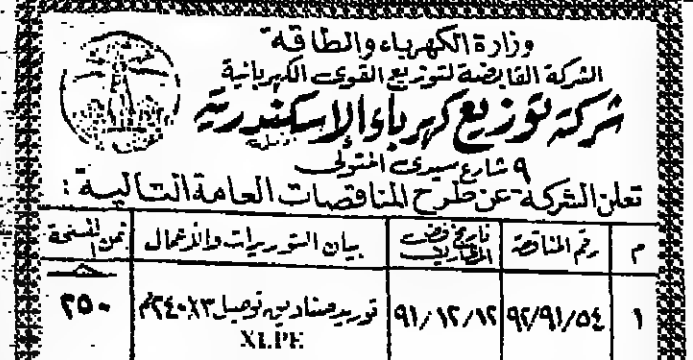 وزارة الكهرباء والطاقة
الشركة القابضة لتوزيع القوى الكهربائية
شركة توزيع كهرباء الاسكندرية
٩ شارع سيدى المتولى
تعلن الشركة عن طرح المناقصات العامة التالية :
م رقم المناقصة تاريخ فض المظاريف بيان التوريدات والأعمال ثمن النسخة
١ ٩٢/٩١/٥٤ ٩١/١٢/١٢ توريد صناديق توصيل ٢٤٠×٣مم ٢٥٠
XLPE